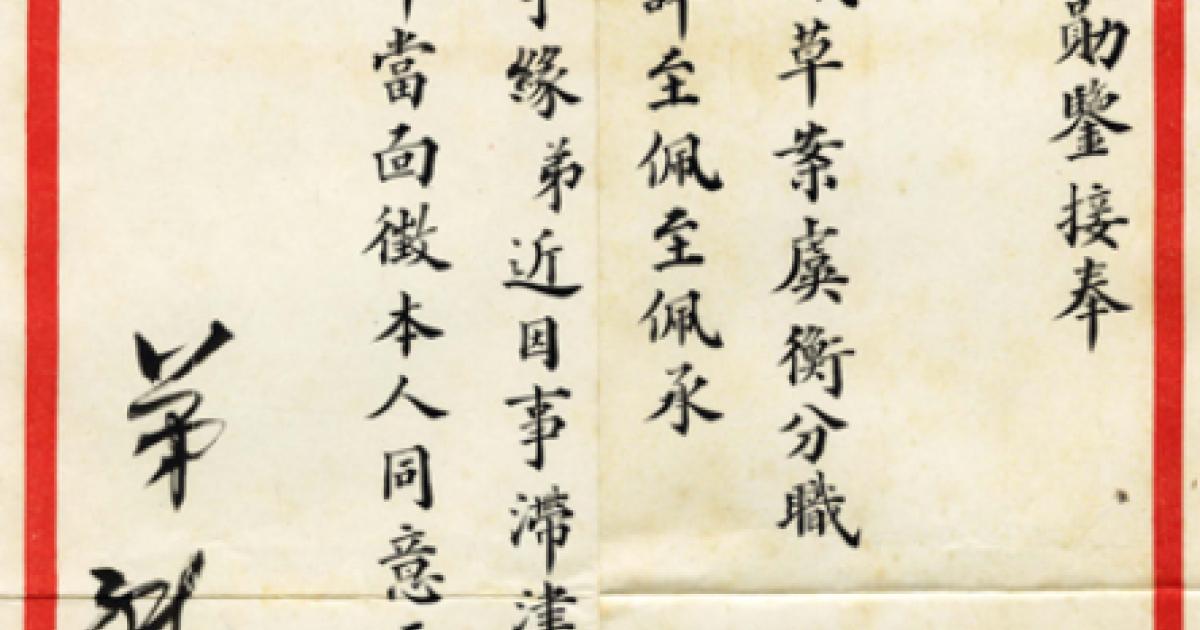 勛鑒接奉
草案虞衡分職
至佩至佩承
緣弟近因事滯津
當面徵本人同意
弟